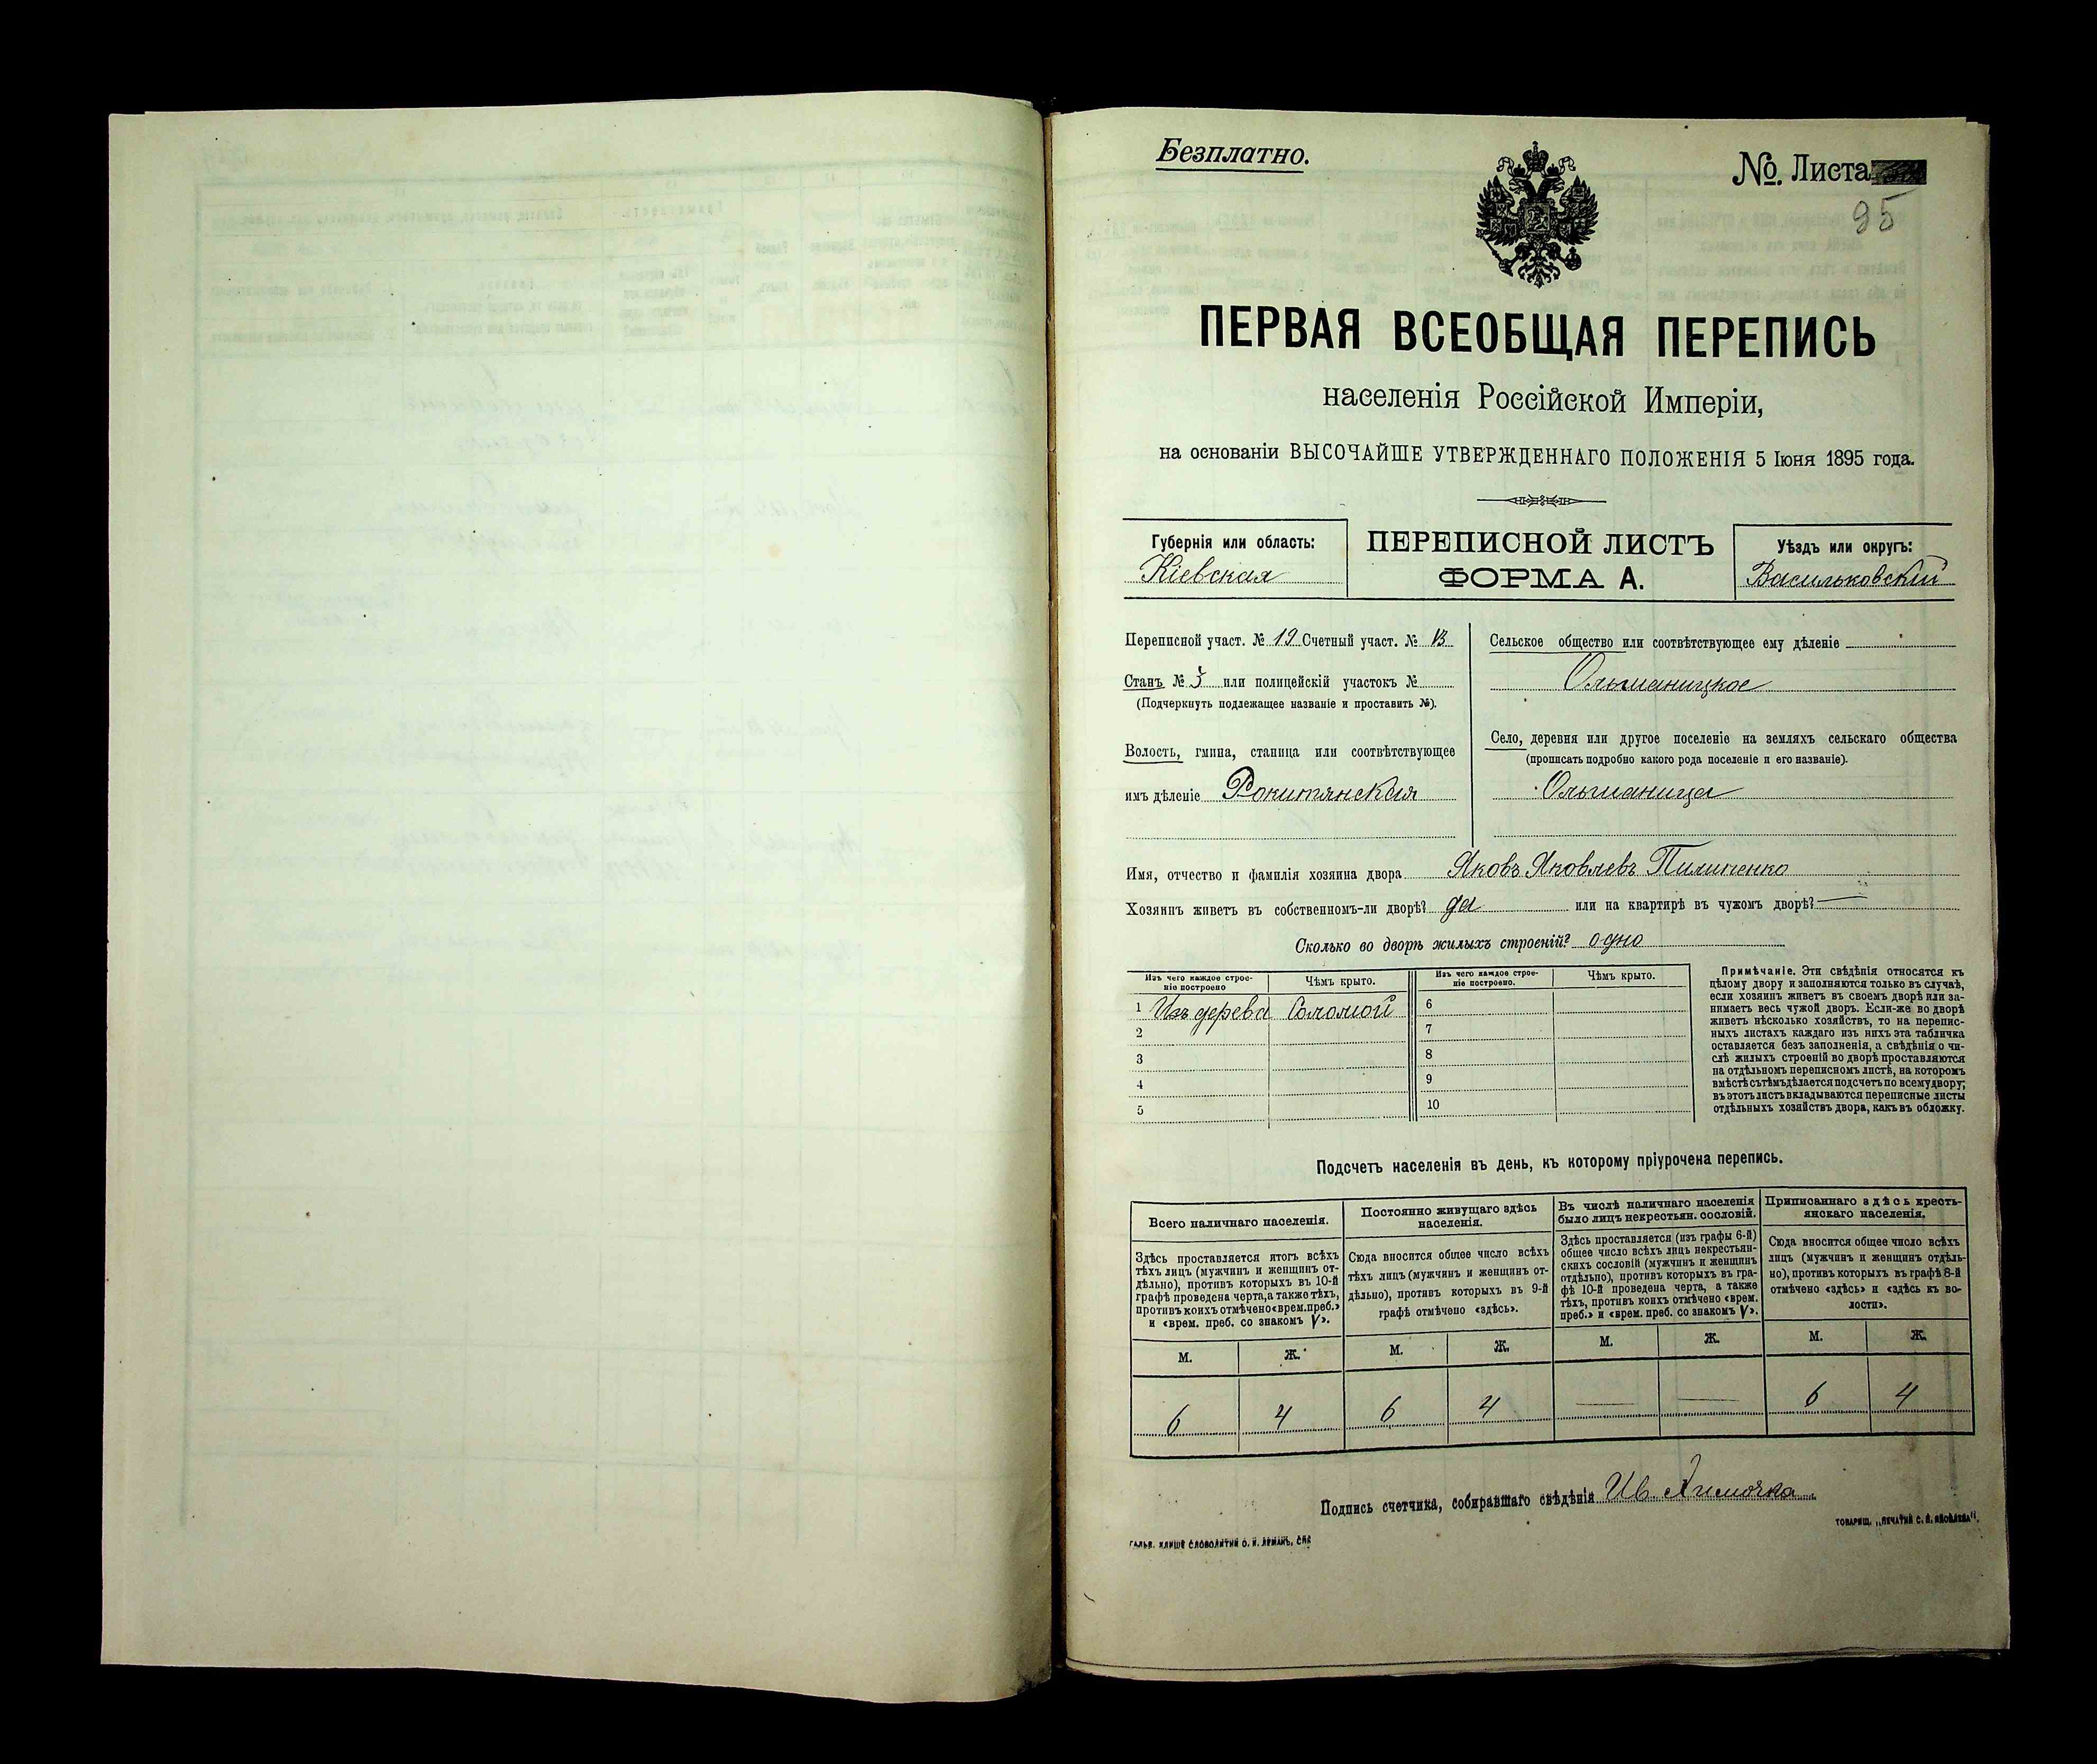 Безплатно.
№ Листа
95
ПЕРВАЯ ВСЕОБЩАЯ ПЕРЕПИСЬ
населенія Россійской Имперіи,
на основаніи ВЫСОЧАЙШЕ УТВЕРЖДЕННАГО ПОЛОЖЕНІЯ 5 Іюня 1895 года.
Губернія или область:
Кіевская
ПЕРЕПИСНОЙ ЛИСТЪ
ФОРМА А.
Уѣздъ или округъ:
Васильковскій
Переписной участ. № 19 Счетный участ. №
Станъ № 3 или полицейскій участокъ №
(Подчеркнуть подлежащее названіе и проставить №).
Волость, гмина, станица или соотвѣтствующее
имъ дѣленіе Рокитянская
Сельское общество или соотвѣтствующее ему дѣленіе
Ольшаницкое
Село, деревня или другое поселеніе на земляхъ сельскаго общества
(прописать подробно какого рода поселеніе и его названіе).
Ольшаница
Имя, отчество и фамилія хозяина двора Яковъ Яковлевъ Пилипенко
Хозяинъ живетъ въ собственномъ-ли дворѣ? да или на квартирѣ въ чужомъ дворѣ? —
Сколько во дворѣ жилыхъ строеній? одно
Изъ чего каждое строе-
ніе построено
Чѣмъ крыто.
Изъ чего каждое строе-
ніе построено.
Чѣмъ крыто.
1 Изъ дерева Соломой
2
3
4
5
6
7
8
9
10
Примѣчаніе. Эти свѣдѣнія относятся къ
цѣлому двору и заполняются только въ случаѣ,
если хозяинъ живетъ въ своемъ дворѣ или за-
нимаетъ весь чужой дворъ. Если-же во дворѣ
живетъ нѣсколько хозяйствъ, то на перепис-
ныхъ листахъ каждаго изъ нихъ эта табличка
оставляется безъ заполненія, а свѣдѣнія о чи-
слѣ жилыхъ строеній во дворѣ проставляются
на отдѣльномъ переписномъ листѣ, на которомъ
вмѣстѣ съ тѣмъ дѣлается подсчетъ по всему двору;
въ этотъ листъ вкладываются переписные листы
отдѣльныхъ хозяйствъ двора, какъ въ обложку.
Подсчетъ населенія въ день, къ которому пріурочена перепись.
Всего наличнаго населенія.
Здѣсь проставляется итогъ всѣхъ
тѣхъ лицъ (мужчинъ и женщинъ от-
дѣльно), противъ которыхъ въ 10-й
графѣ проведена черта, а также тѣхъ,
противъ коихъ отмѣчено «врем. преб.»
и «врем. преб. со знакомъ V».
М. Ж.
6 4
Постоянно живущаго здѣсь
населенія.
Сюда вносится общее число всѣхъ
тѣхъ лицъ (мужчинъ и женщинъ от-
дѣльно), противъ которыхъ въ 9-й
графѣ отмѣчено «здѣсь».
М. Ж.
6 4
Въ числѣ наличнаго населенія
было лицъ некрестьян. сословій.
Здѣсь проставляется (изъ графы 6-й)
общее число всѣхъ лицъ некрестьян-
скихъ сословій (мужчинъ и женщинъ
отдѣльно), противъ которыхъ въ гра-
фѣ 10-й проведена черта, а также
тѣхъ, противъ коихъ отмѣчено «врем.
преб.» и «врем. преб. со знакомъ V».
М. Ж.
— —
Приписаннаго здѣсь кресть-
янскаго населенія.
Сюда вносится общее число всѣхъ
лицъ (мужчинъ и женщинъ отдѣль-
но), противъ которыхъ въ графѣ 8-й
отмѣчено «здѣсь» и «здѣсь къ во-
лости».
М. Ж.
6 4
Подпись счетчика, собиравшаго свѣдѣнія Ив.
ТОВАРИЩ. „ПЕЧАТНЯ С. П. ЯКОВЛЕВА".
ГАЛЬВ. КЛИШЕ СЛОВОЛИТНИ О. И. ЛЕМАНЪ, СПБ